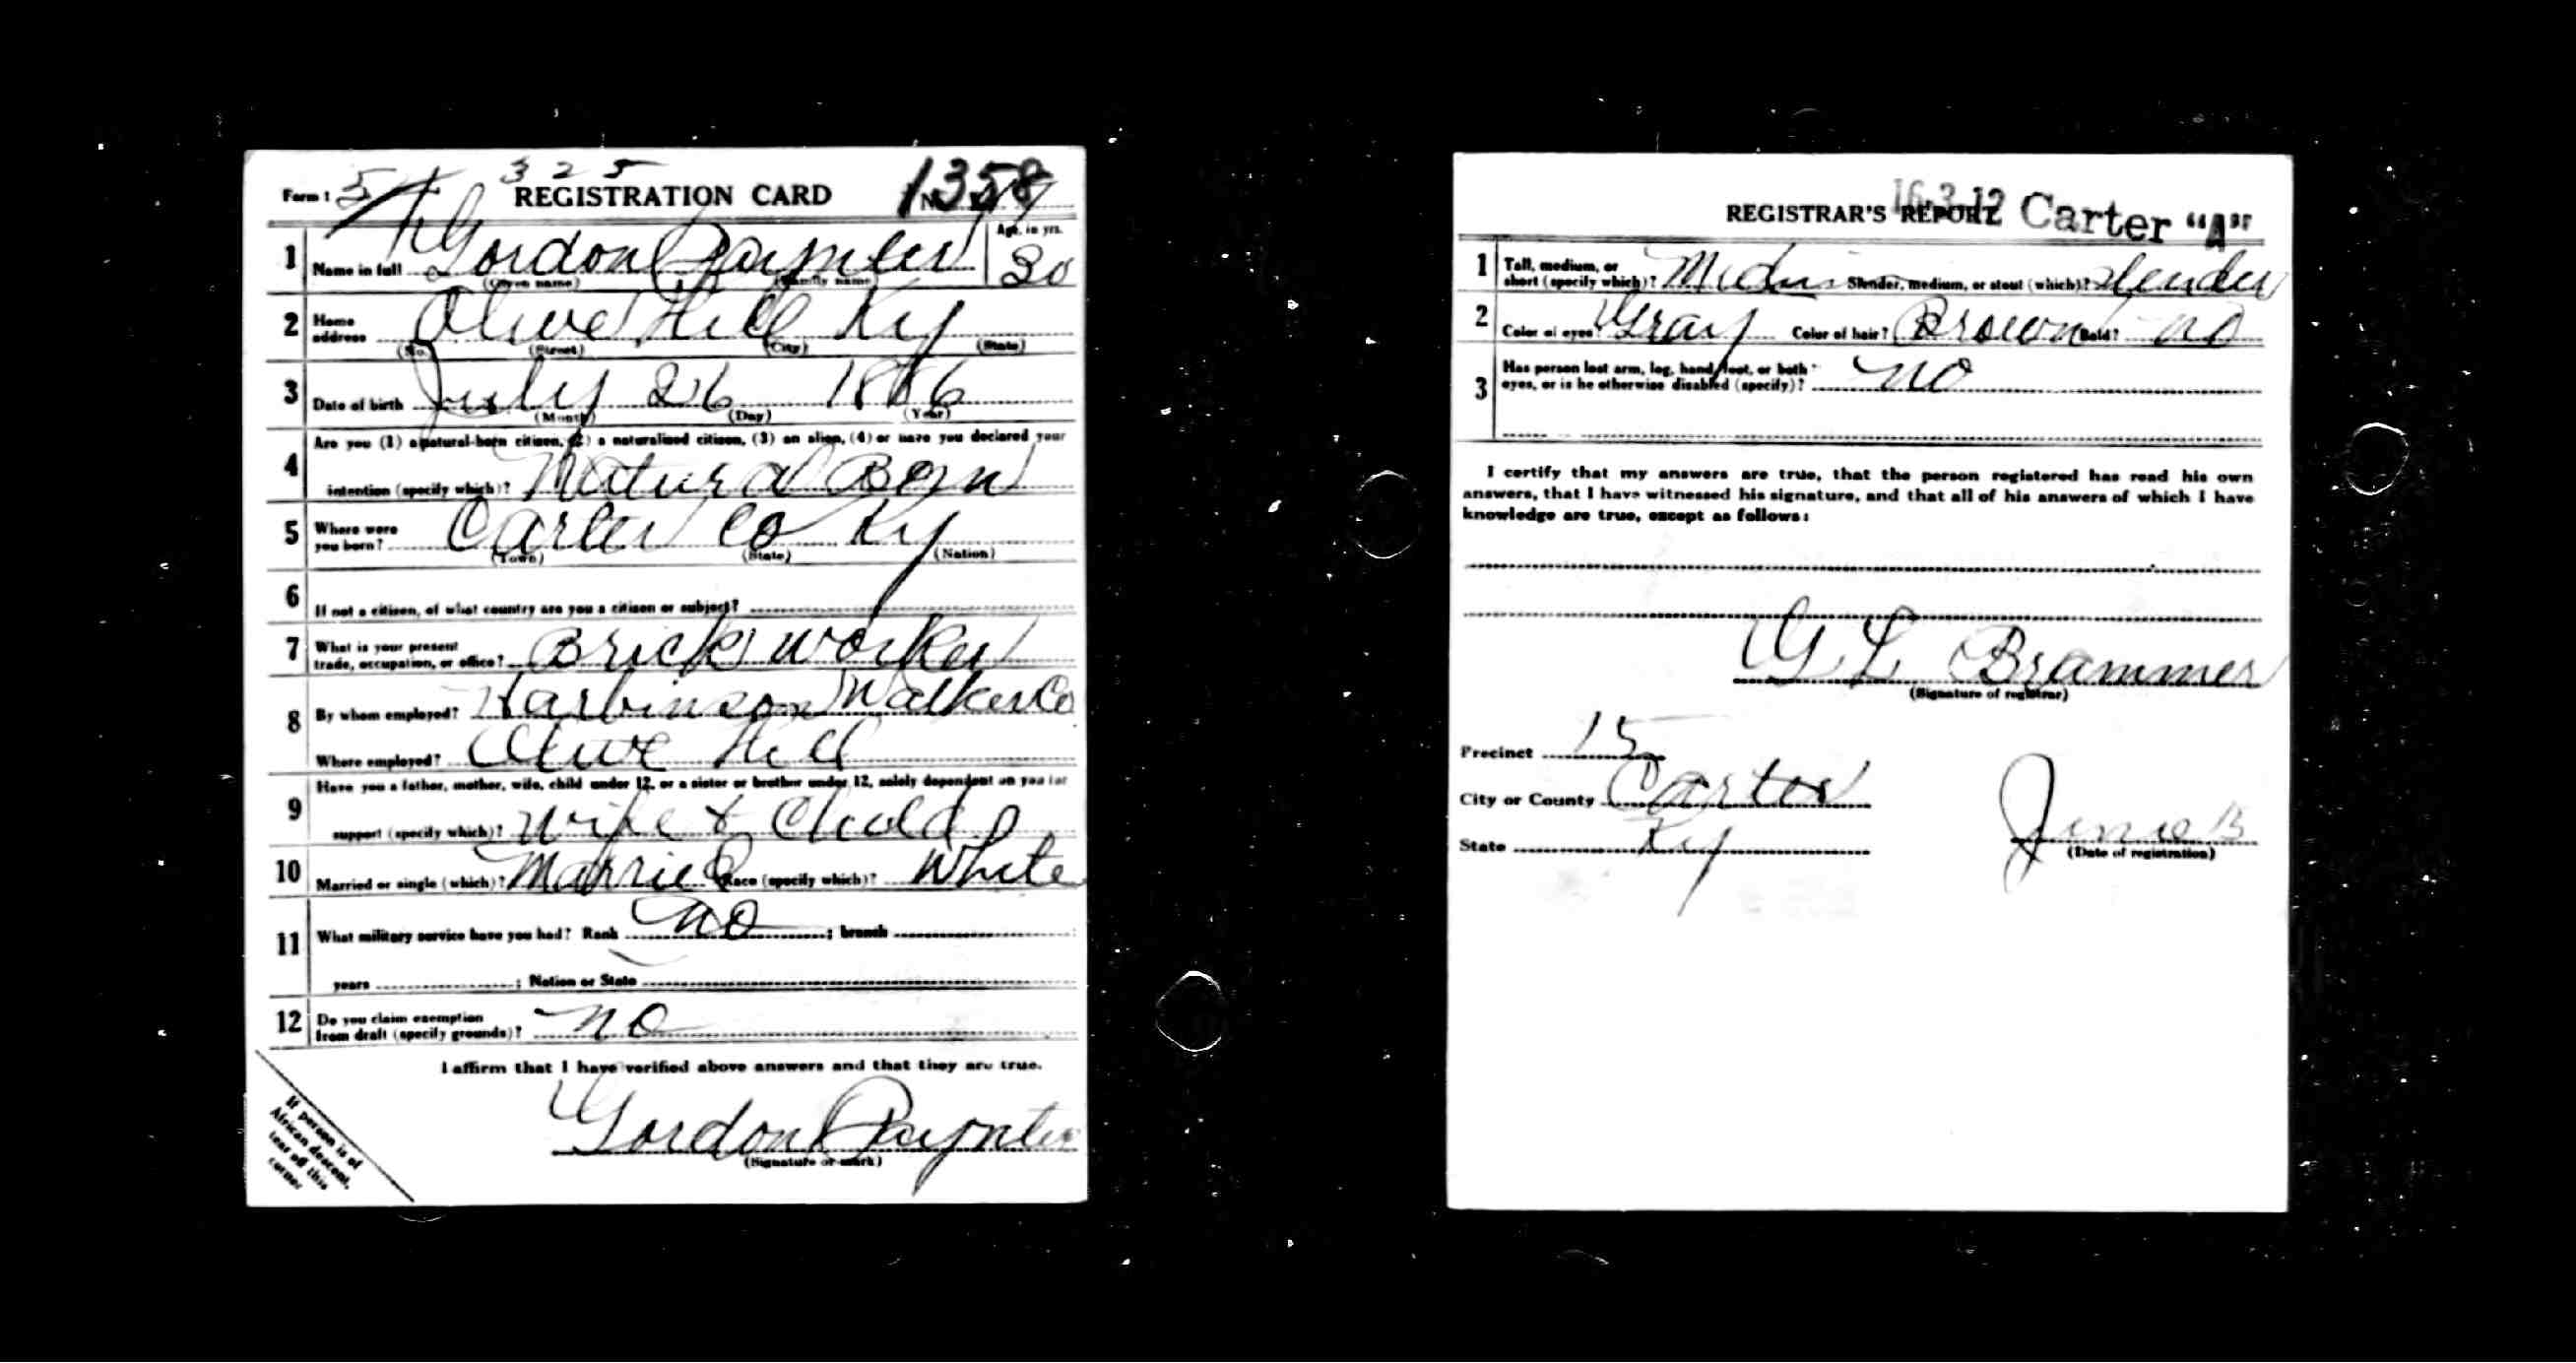 Form 1 5 325 REGISTRATION CARD No. 1358
1 Name in full Gordon Paynter Age, in yrs. 30
(Given name) (Family name)
2 Home address Olive Hill Ky
(No.) (Street) (City) (State)
3 Date of birth July 26 1886
(Month) (Day) (Year)
4 Are you (1) a natural-born citizen, (2) a naturalized citizen, (3) an alien, (4) or have you declared your
intention (specify which)? Natural Born
5 Where were you born? Carter Co Ky
(Town) (State) (Nation)
6 If not a citizen, of what country are you a citizen or subject?
7 What is your present trade, occupation, or office? Brick worker
8 By whom employed? Harbinson Walker Co
Where employed? Olive Hill
9 Have you a father, mother, wife, child under 12, or a sister or brother under 12, solely dependent on you for
support (specify which)? Wife & Child
10 Married or single (which)? Married Race (specify which)? White
11 What military service have you had? Rank no ; branch
years ; Nation or State
12 Do you claim exemption from draft (specify grounds)? no
I affirm that I have verified above answers and that they are true.
Gordon Paynter
(Signature or mark)
If person is of
African descent,
tear off this
corner
16-3-12
REGISTRAR'S REPORT Carter "A"
1 Tall, medium, or short (specify which)? Medium Slender, medium, or stout (which)? Slender
2 Color of eyes? Gray Color of hair? Brown Bald? no
3 Has person lost arm, leg, hand, foot, or both
eyes, or is he otherwise disabled (specify)? no
I certify that my answers are true, that the person registered has read his own
answers, that I have witnessed his signature, and that all of his answers of which I have
knowledge are true, except as follows:
G L Brammer
(Signature of registrar)
Precinct 15
City or County Carter
State Ky
June 5
(Date of registration)